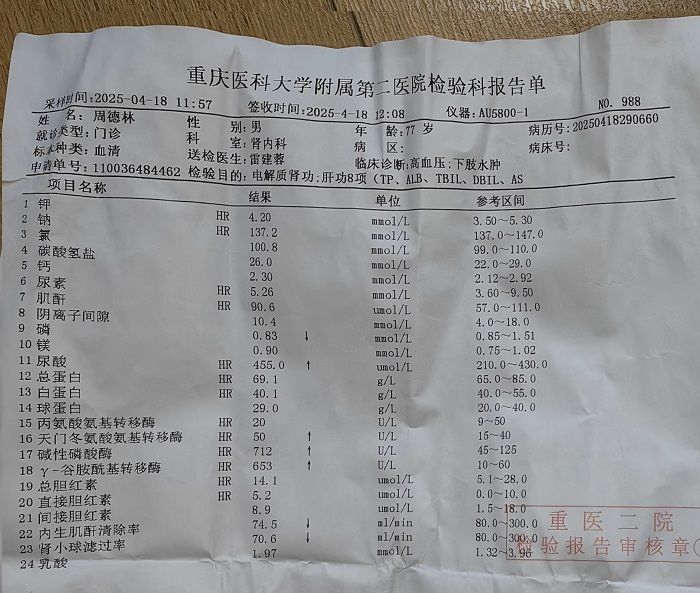 重庆医科大学附属第二医院检验科报告单
采样时间:2025-04-18 11:57 签收时间:2025-4-18 12:08 仪器:AU5800-1 NO. 988
姓 名:周德林 性 别:男 年 龄:77 岁 病历号:20250418290660
就诊类型:门诊 科 室:肾内科 病 区: 病床号:
标本种类:血清 送检医生:雷建蓉 临床诊断:高血压;下肢水肿
申请单号:110036484462 检验目的:电解质肾功;肝功8项（TP、ALB、TBIL、DBIL、AS
项目名称 结果 单位 参考区间
1 钾 HR 4.20 mmol/L 3.50～5.30
2 钠 HR 137.2 mmol/L 137.0～147.0
3 氯 100.8 mmol/L 99.0～110.0
4 碳酸氢盐 26.0 mmol/L 22.0～29.0
5 钙 2.30 mmol/L 2.12～2.92
6 尿素 HR 5.26 mmol/L 3.60～9.50
7 肌酐 HR 90.6 umol/L 57.0～111.0
8 阴离子间隙 10.4 mmol/L 4.0～18.0
9 磷 0.83 ↓ mmol/L 0.85～1.51
10 镁 0.90 mmol/L 0.75～1.02
11 尿酸 HR 455.0 ↑ umol/L 210.0～430.0
12 总蛋白 HR 69.1 g/L 65.0～85.0
13 白蛋白 HR 40.1 g/L 40.0～55.0
14 球蛋白 29.0 g/L 20.0～40.0
15 丙氨酸氨基转移酶 HR 20 U/L 9～50
16 天门冬氨酸氨基转移酶 HR 50 ↑ U/L 15～40
17 碱性磷酸酶 HR 712 ↑ U/L 45～125
18 γ-谷胺酰基转移酶 HR 653 ↑ U/L 10～60
19 总胆红素 HR 14.1 umol/L 5.1～28.0
20 直接胆红素 HR 5.2 umol/L 0.0～10.0
21 间接胆红素 8.9 umol/L 1.5～18.0
22 内生肌酐清除率 74.5 ↓ ml/min 80.0～300.0
23 肾小球滤过率 70.6 ↓ ml/min 80.0～300.0
24 乳酸 1.97 mmol/L 1.32～3.96
重医二院
检验报告审核章